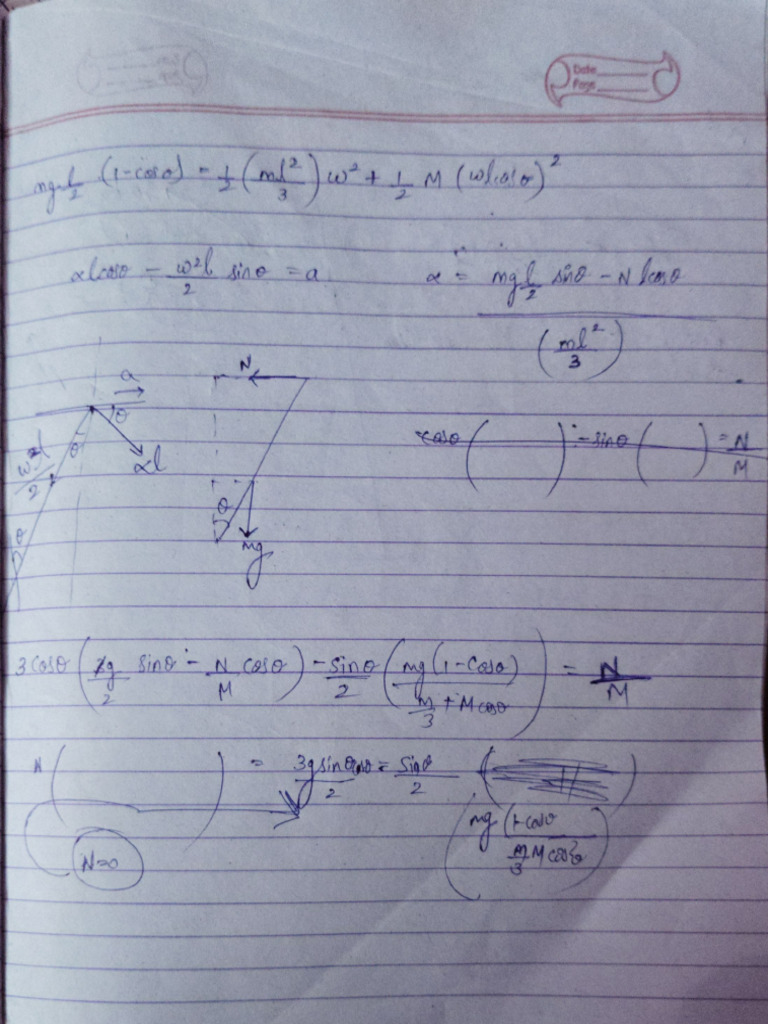 Date
Page
mg l/2 (1-cosθ) = 1/2 (ml²/3) ω² + 1/2 M (ωlcosθ)²
αlcosθ - ω²l/2 sinθ = a α = (mg l/2 sinθ - N lcosθ)/(ml²/3)
a N
θ
θ αl cosθ ( ) - sinθ ( ) = N/M
ω²l/2
θ θ
mg
3cosθ (g/2 sinθ - N/M cosθ) - sinθ/2 (mg(1-cosθ)/(m/3 + Mcosθ)) = N/M
N ( ) = 3gsinθcosθ/2 = sinθ/2 ( )
N=0 (mg (1-cosθ)/(m/3 Mcos²θ))